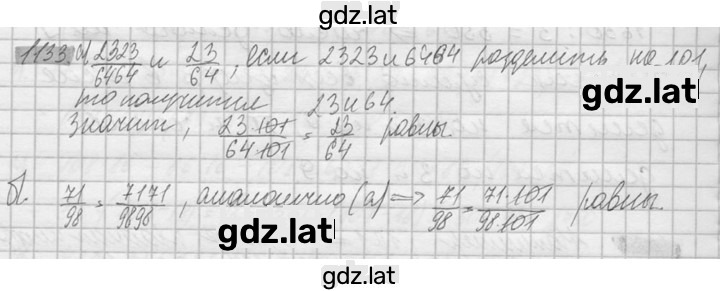 gdz.lat
1133 а) 2323/6464 и 23/64, если 2323 и 6464 разделить на 101,
то получится 23 и 64.
gdz.lat
Значит, 23·101/64·101 = 23/64 равны.
б). 71/98 = 7171/9898, аналогично (а) => 71/98 = 71·101/98·101 равны.
gdz.lat
gdz.lat